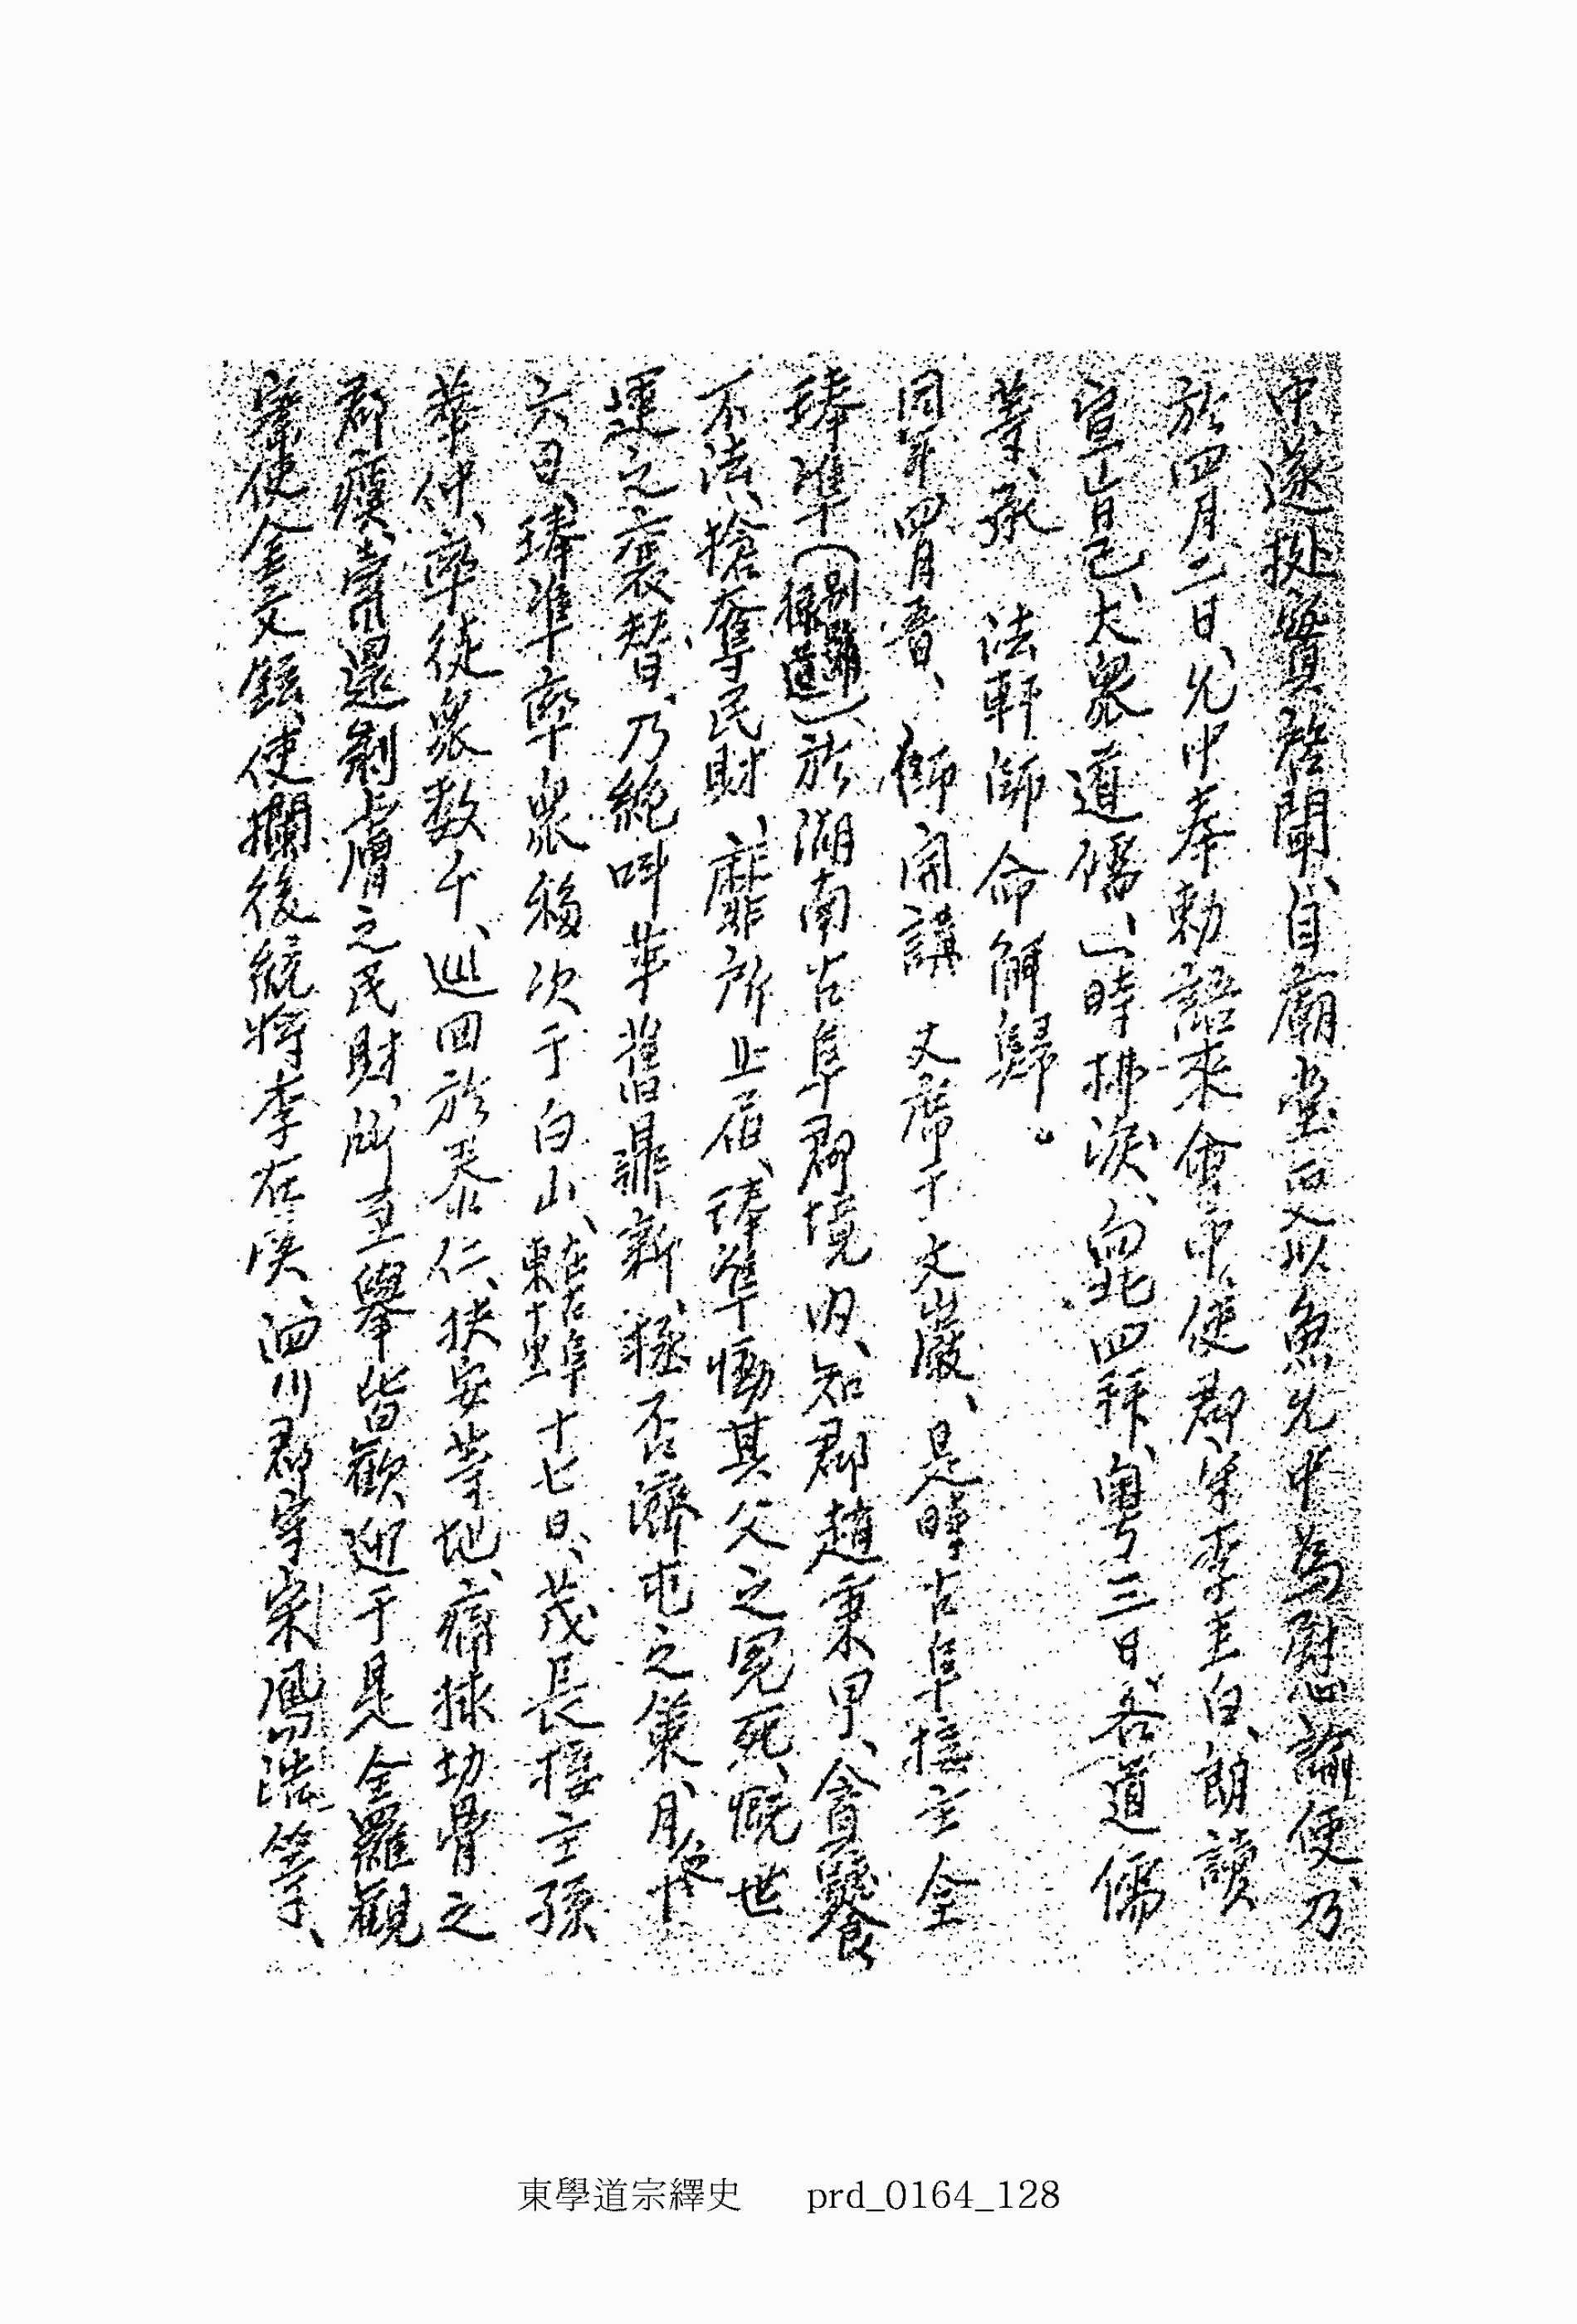 中、遂挻實啓聞、自廟堂更以魚允中爲慰諭使、乃
於四月二日、允中奉勅語來會中、使郡守李圭白、朗讀
宣旨已、大衆道儒、一時拂淚、向北四拜、粤三日、各道儒
等、承 法軒師命解歸。
同年四月晋、 師開講 丈席于文巖、是時古阜接主全
琫準(別號綠道)、於湖南古阜郡境內、知郡趙秉甲、貪饕
不法、搶奪民財、靡所止屆、琫準慟其父之冤死、慨世
運之衰替、乃絶叫革舊鼎新、拯否濟屯之策、月後十
六日、琫準率衆移次于白山、轄古阜、十七日、茂長接主孫
華仲、率徒衆數千、巡回於泰仁、扶安等地、痛捄切骨之
郡瘼、嘗還剝膚之民財、所至擧皆歡迎、于是全羅觀
察使金文鉉、使攔後統將李在漢、洄川郡守宋鳳浩等、
東學道宗繹史 prd_0164_128